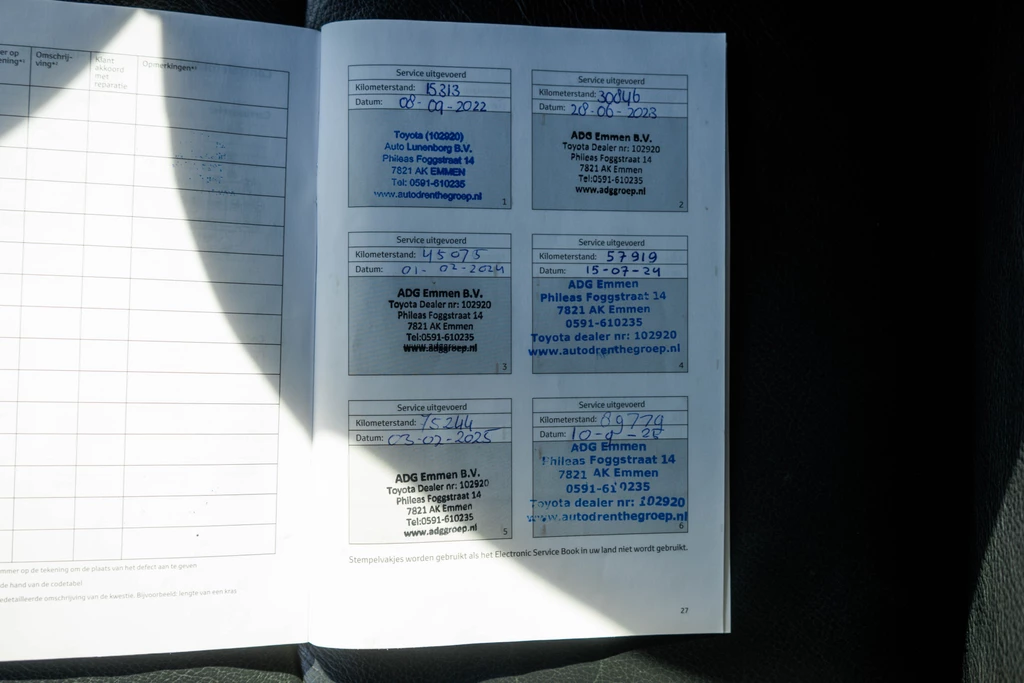 er op
ening*¹
Omschrij-
ving*²
Klant
akkoord
met
reparatie
Opmerkingen*³
mmer op de tekening om de plaats van het defect aan te geven
de hand van de codetabel
edetailleerde omschrijving van de kwestie. Bijvoorbeeld: lengte van een kras
Service uitgevoerd
Kilometerstand: 15313
Datum: 08-09-2022
Toyota (102920)
Auto Lunenborg B.V.
Phileas Foggstraat 14
7821 AK EMMEN
Tel: 0591-610235
www.autodrenthegroep.nl
1
Service uitgevoerd
Kilometerstand: 30846
Datum: 28-06-2023
ADG Emmen B.V.
Toyota Dealer nr: 102920
Phileas Foggstraat 14
7821 AK Emmen
Tel:0591-610235
www.adggroep.nl
2
Service uitgevoerd
Kilometerstand: 45075
Datum: 01-02-2024
ADG Emmen B.V.
Toyota Dealer nr: 102920
Phileas Foggstraat 14
7821 AK Emmen
Tel:0591-610235
www.adggroep.nl
3
Service uitgevoerd
Kilometerstand: 57919
Datum: 15-07-24
ADG Emmen
Phileas Foggstraat 14
7821 AK Emmen
0591-610235
Toyota dealer nr: 102920
www.autodrenthegroep.nl
4
Service uitgevoerd
Kilometerstand: 75244
Datum: 03-02-2025
ADG Emmen B.V.
Toyota Dealer nr: 102920
Phileas Foggstraat 14
7821 AK Emmen
Tel:0591-610235
www.adggroep.nl
5
Service uitgevoerd
Kilometerstand:
Datum:
ADG Emmen
Phileas Foggstraat 14
7821 AK Emmen
0591-610235
Toyota dealer nr: 102920
www.autodrenthegroep.nl
6
Stempelvakjes worden gebruikt als het Electronic Service Book in uw land niet wordt gebruikt.
27